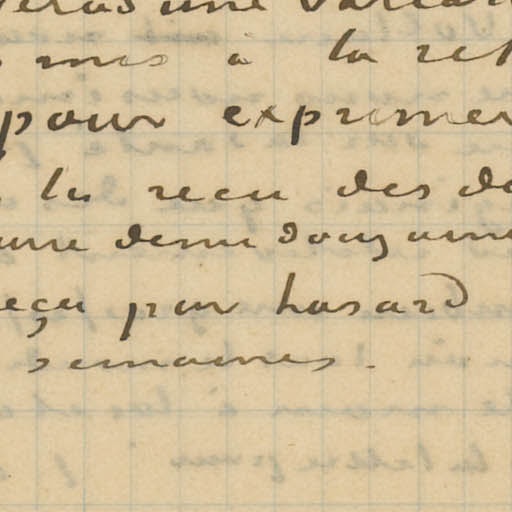 une
mes à la ret
pour exprimer
lu recu des de
une demi douzaine
eçu par hasard
semaines.